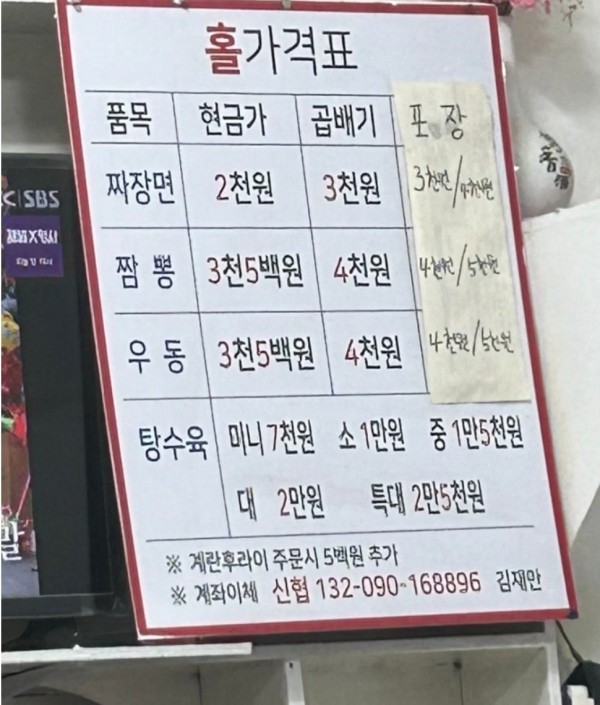 홀가격표
품목 현금가 곱배기 포장
짜장면 2천원 3천원 3천원/4천원
짬뽕 3천5백원 4천원 4천원/5천원
우동 3천5백원 4천원 4천원/5천원
탕수육 미니 7천원 소 1만원 중 1만5천원
대 2만원 특대 2만5천원
※ 계란후라이 주문시 5백원 추가
※ 계좌이체 신협 132-090-168896 김재만
SBS